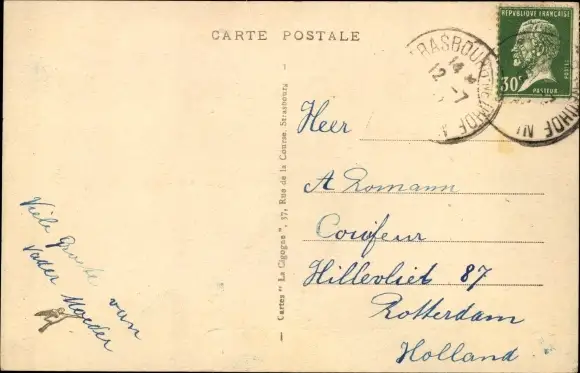 CARTE POSTALE
RÉPUBLIQUE FRANÇAISE
POSTES
30c
PASTEUR
STRASBOURG
14 *
12 -7
NEUHOF
Cartes " La Cigogne ", 37, Rue de la Course, Strasbourg
Heer
A Romann
Coiffeur
Hillevliet 87
Rotterdam
Holland
Viele Groete van
Vader Moeder